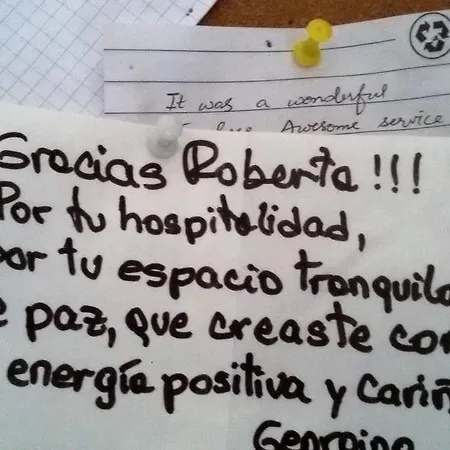 It was a wonderful
Awesome service
Gracias Roberta!!!
Por tu hospitalidad,
por tu espacio tranquilo
e paz, que creaste con
energía positiva y Cariñ
Georgina